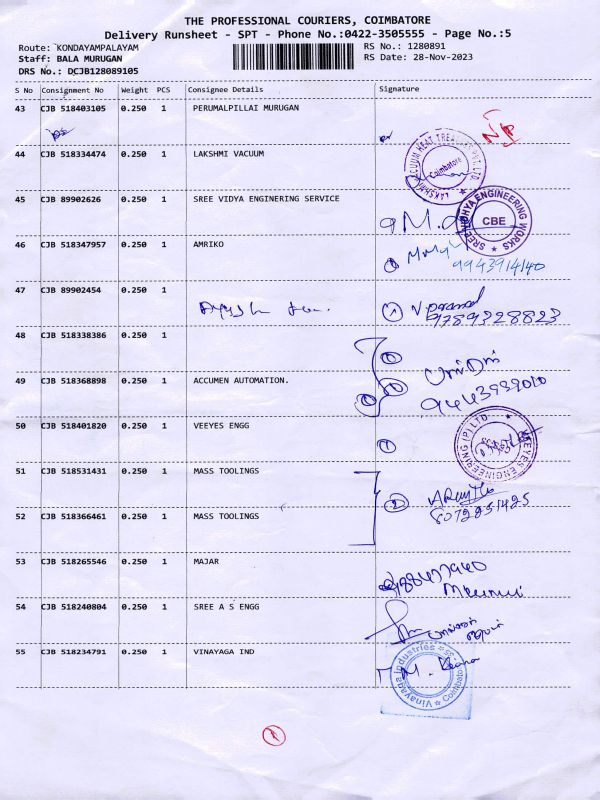 THE PROFESSIONAL COURIERS, COIMBATORE
Delivery Runsheet - SPT - Phone No.:0422-3505555 - Page No.:5
Route: KONDAYAMPALAYAM RS No.: 1280891
Staff: BALA MURUGAN RS Date: 28-Nov-2023
DRS No.: DCJB128089105
S No Consignment No Weight PCS Consignee Details Signature
43 CJB 518403105 0.250 1 PERUMALPILLAI MURUGAN
44 CJB 518334474 0.250 1 LAKSHMI VACUUM
LAKSHMI VACUUM HEAT TREATERS PVT. LTD. Coimbatore
45 CJB 89902626 0.250 1 SREE VIDYA ENGINERING SERVICE
SREE VIDHYA ENGINEERING WORKS CBE
46 CJB 518347957 0.250 1 AMRIKO
9943914140
47 CJB 89902454 0.250 1
1
9789328823
48 CJB 518338386 0.250 1
1
49 CJB 518368898 0.250 1 ACCUMEN AUTOMATION.
1
9443939010
50 CJB 518401820 0.250 1 VEEYES ENGG 1
VEEYES ENGINEERING (P) LTD.
51 CJB 518531431 0.250 1 MASS TOOLINGS
2
8072251425
52 CJB 518366461 0.250 1 MASS TOOLINGS
53 CJB 518265546 0.250 1 MAJAR
54 CJB 518240804 0.250 1 SREE A S ENGG
55 CJB 518234791 0.250 1 VINAYAGA IND
Vinayaga Industries Coimbatore